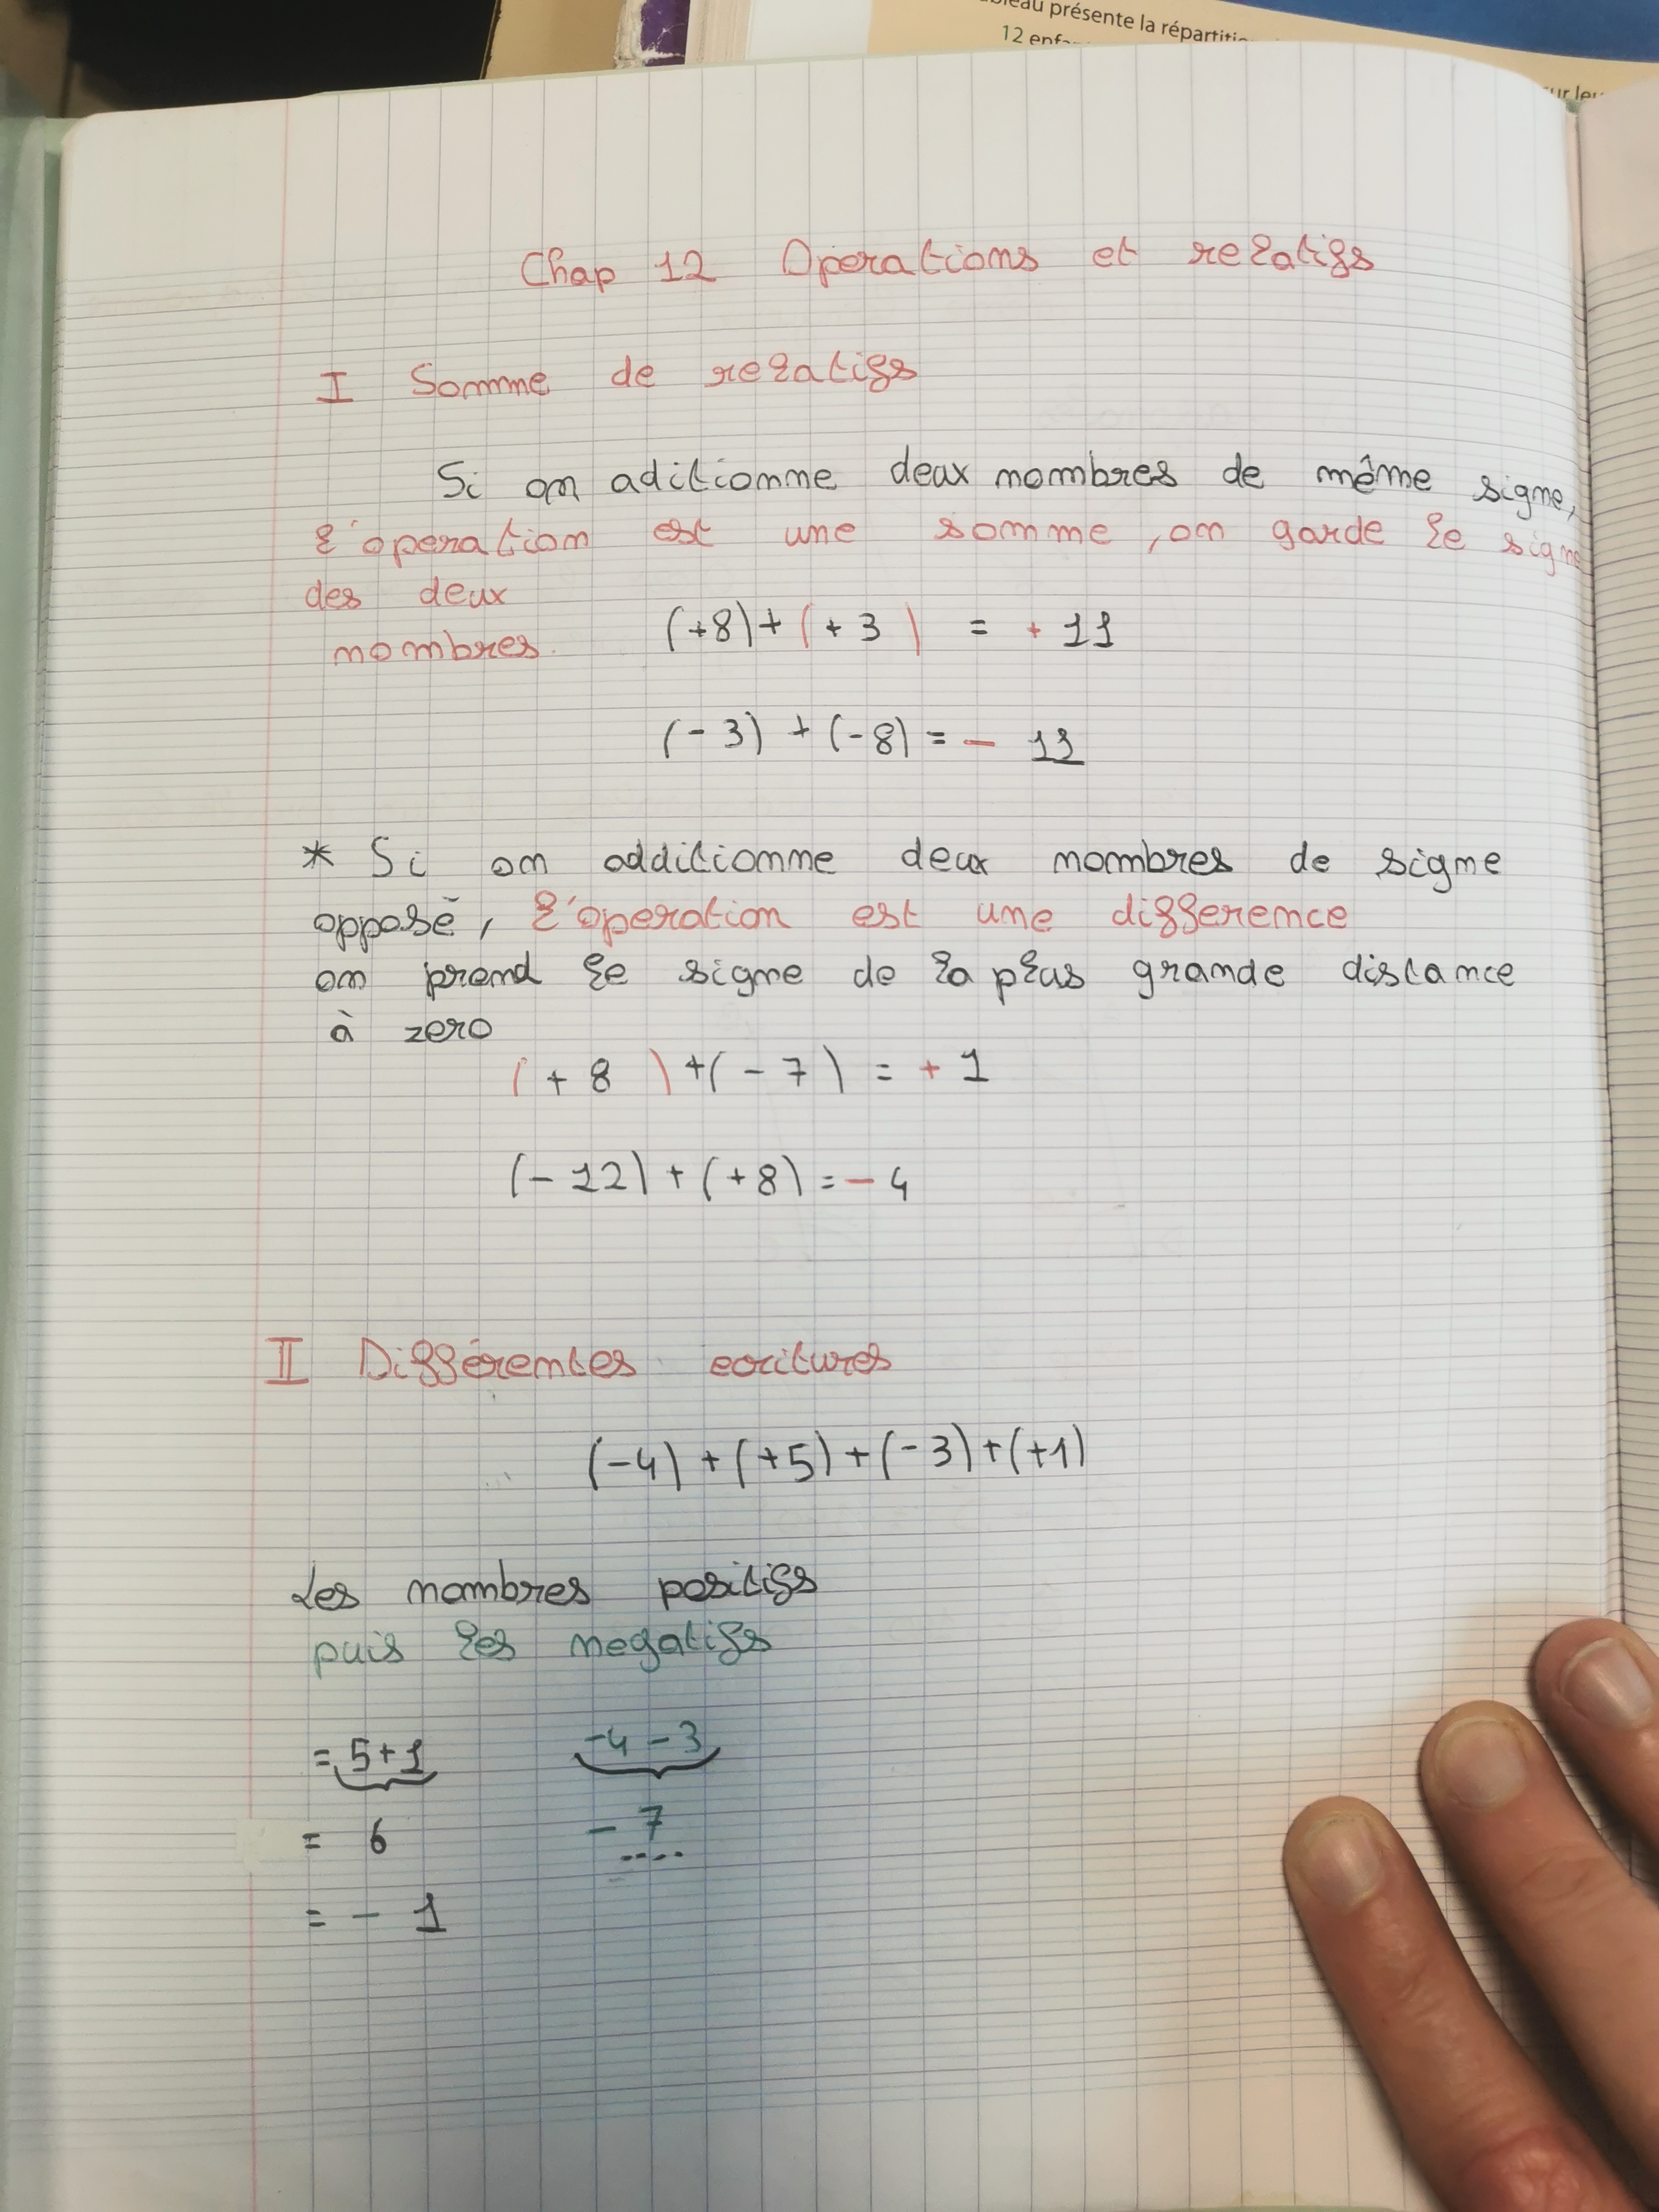 présente la répartiti
12 enf
ur leu
Chap 12 Operations et relatifs
I Somme de relatifs
Si on aditionne deux nombres de même signe,
l'operation est une somme, on garde le signe
des deux
nombres.
(+8)+(+3) = +11
(-3) + (-8) = - 11
* Si on additionne deux nombres de signe
opposé, l'operation est une difference
on prend le signe de la plus grande distance
à zero
(+8)+(-7) = +1
(-12)+(+8)=-4
II Différentes ecritures
(-4)+(+5)+(-3)+(+1)
Les nombres positifs
puis les negatifs
= 5+1 -4-3
= 6 -7
= - 1